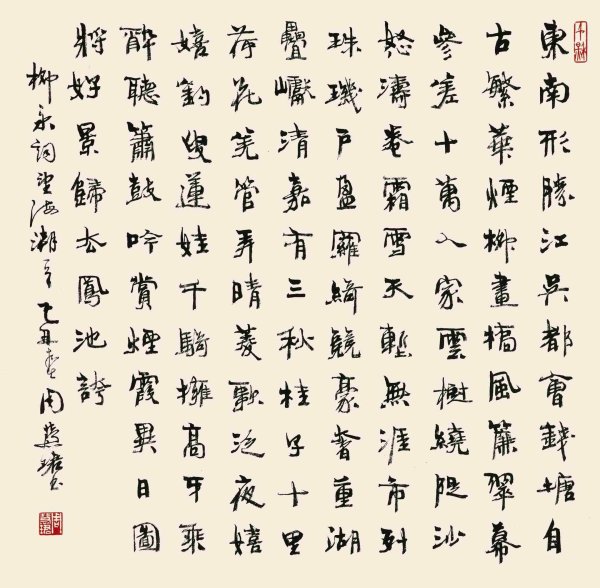 東南形勝江吳都會錢塘自
古繁華煙柳畫橋風簾翠幕
參差十萬人家雲樹繞隄沙
怒濤卷霜雪天塹無涯市列
珠璣戶盈羅綺競豪奢重湖
疊巘清嘉有三秋桂子十里
荷花羌管弄晴菱歌泛夜嬉
嬉釣叟蓮娃千騎擁高牙乘
醉聽簫鼓吟賞煙霞異日圖
將好景歸去鳳池誇
柳永詞望海潮乙丑春周慧珺書